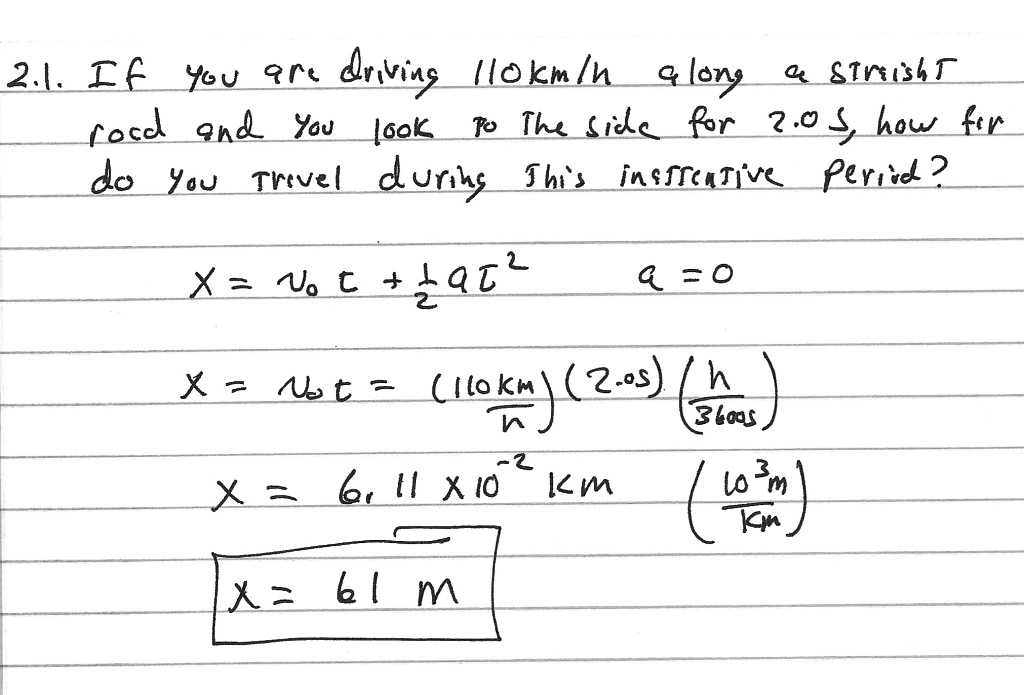 2.1. If you are driving 110km/h along a straight
road and you look to the side for 2.0 s, how far
do you travel during this inattentive period?
x = v₀ t + ½ at² a = 0
x = v₀t = (110km/h) (2.0s) (h/3600s)
x = 6.11 x 10⁻² km (10³m/km)
x = 61 m